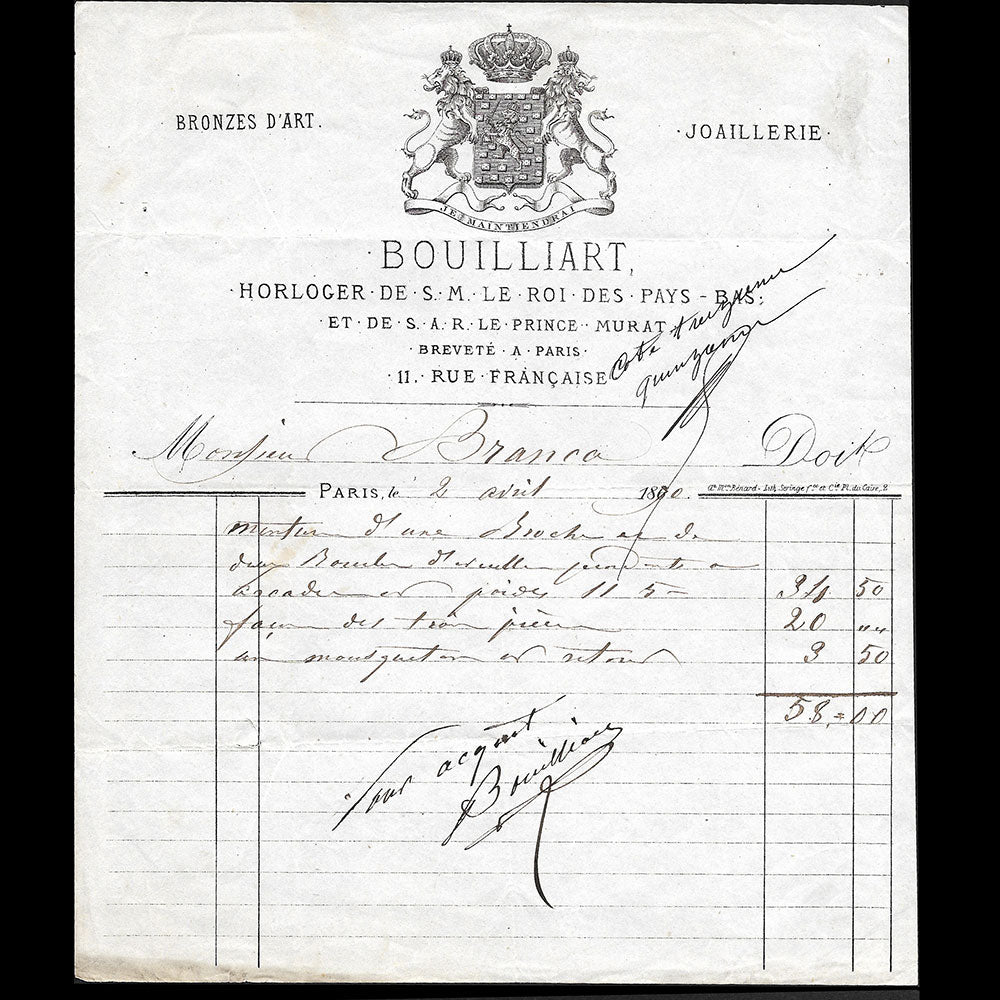 BRONZES D'ART.
·JOAILLERIE·
JE MAINTIENDRAI
·BOUILLIART,
·HORLOGER·DE·S.M.·LE·ROI·DES·PAYS-BAS:
·ET·DE·S.A.R.·LE·PRINCE·MURAT
·BREVETÉ·A·PARIS·
·11.·RUE·FRANÇAISE
Monsieur Branca Doit
PARIS, le 2 avril 1890.
Gde Mon Bénard. Lith. Seringe fres et Cie Pl. du Caire, 2
monture d'une Broche et de
deux Boucles d'oreille
poids 11 5 34 50
façon des trois pièces 20 "„
un mousqueton or retour 3 50
58.=00
Pour acquit
Bouilliart